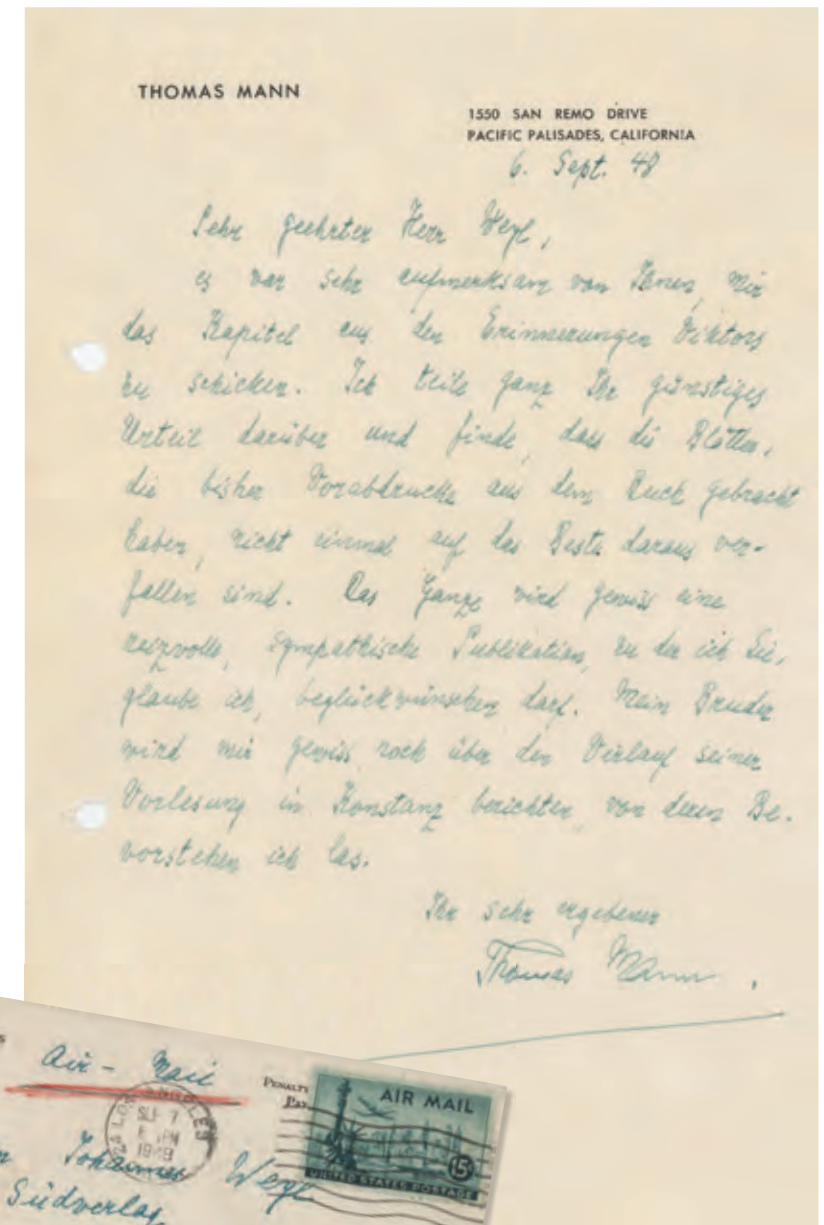 THOMAS MANN
1550 SAN REMO DRIVE
PACIFIC PALISADES, CALIFORNIA
6. Sept. 48
Sehr geehrter Herr Weyl,
es war sehr aufmerksam von Ihnen, mir
das Kapitel aus den Erinnerungen Viktors
zu schicken. Ich teile ganz Ihr günstiges
Urteil darüber und finde, dass die Blätter,
die bisher Vorabdrucke aus dem Buch gebracht
haben, nicht einmal auf das Beste daraus ver-
fallen sind. Das Ganze wird gewiss eine
reizvolle, sympathische Publikation, zu der ich Sie,
glaube ich, beglückwünschen darf. Mein Bruder
wird mir gewiss noch über den Verlauf seiner
Vorlesung in Konstanz berichten, von deren Be-
vorstehen ich las.
Ihr sehr ergebener
Thomas Mann.
Air-Mail
PENALTY
PAY
AIR MAIL
LOS ANGELES
SEP 7
PM
1948
15¢
UNITED STATES POSTAGE
Johannes Weyl
Südverlag